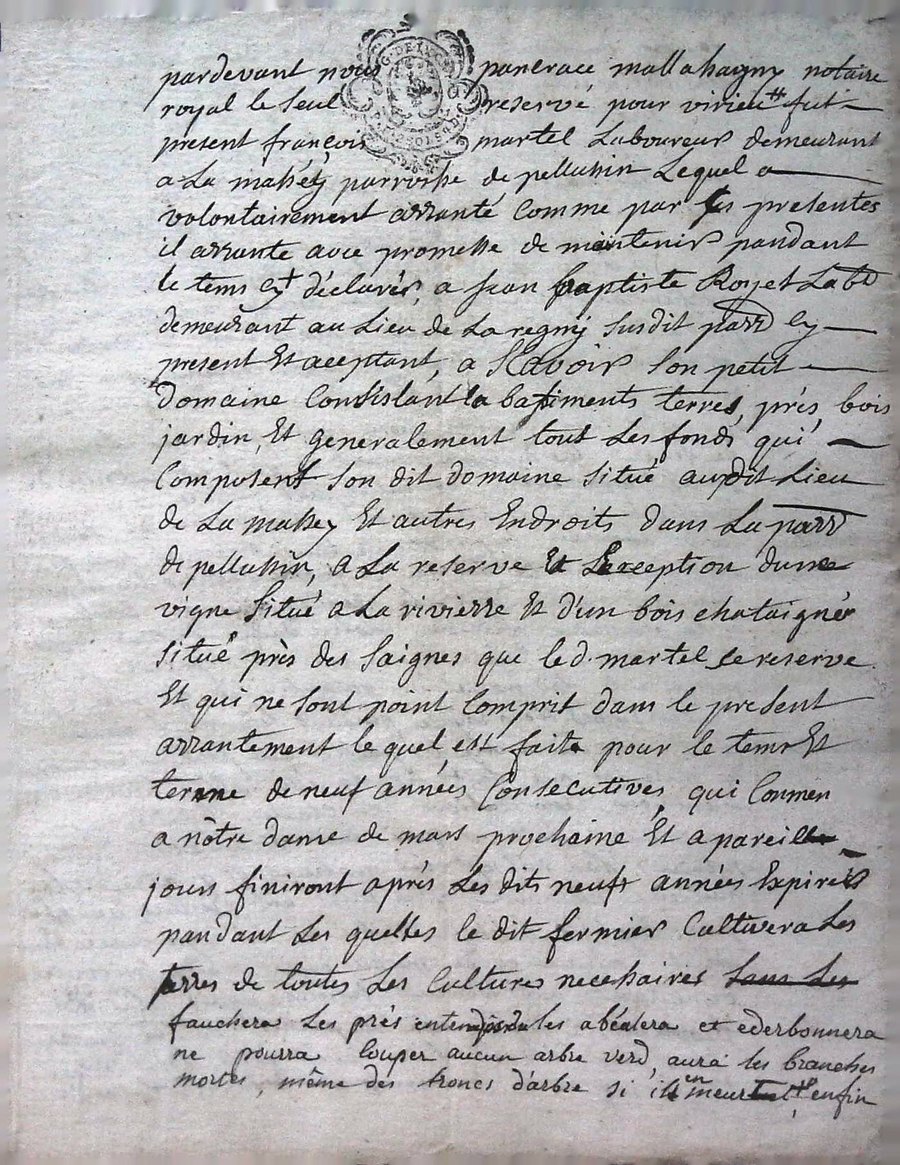 G. DE LYON
pardevant nous pancrace mallahagny notaire
royal le seul reservé pour virieu # fut
present françois martel Laboureur demeurant
a La massey parroisse de pellussin Lequel a
volontairement arranté comme par ses presentes
il arrante avec promesse de maintenir pandant
le tems cy declarés, a jean baptiste Royet Labr
demeurant au Lieu de La regny susdit parr cy
present Et aceptant, a Scavoir son petit
domaine Consistant a batiments terres, prés, bois
jardin, Et generalement tout Les fonds qui
Composent son dit domaine situé audit Lieu
de La massey Et autres Endroits dans La parr
de pellussin, a La reserve Et Lexception dune
vigne situé a La rivierre Et d'un bois chataigné
situé près des saignes que le d. martel se reserve
Et qui ne sont point Comprit dans le present
arrantement le quel est fait pour le tems Et
terme de neuf années Consecutives, qui Commen
a nôtre dame de mars prochaine Et a pareil
jours finiront après Les dits neuf années Expirés
pandant Les quelles le dit fermier Cultivera Les
terres de toutes Les Cultures necessaires sans Les
fauchera Les prés les abéalera et ederbonnera
ne pourra Couper aucun arbre verd, aura les branches
mortes, même des troncs d'arbre si il en meurt # enfin